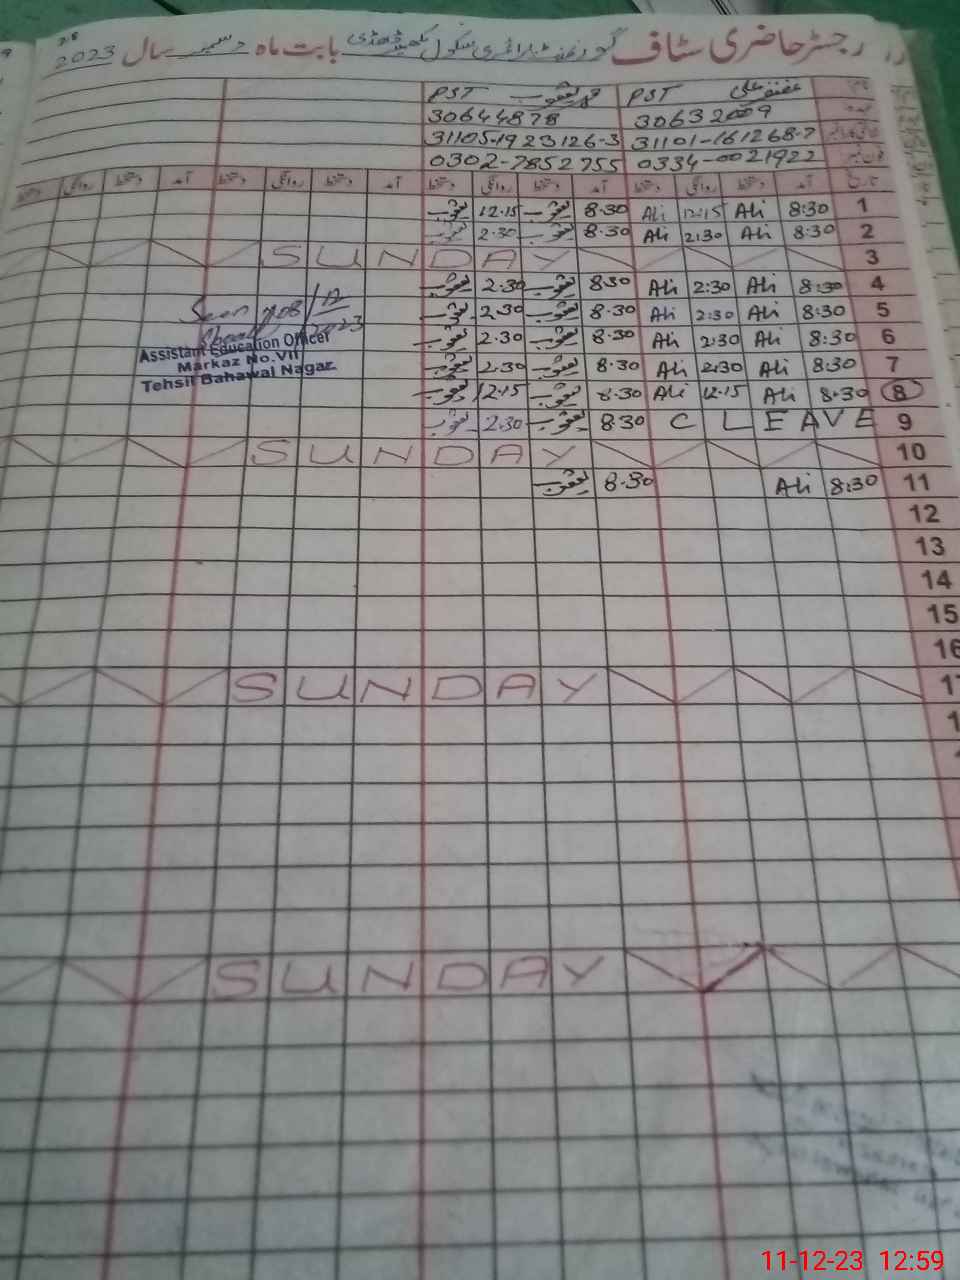 رجسٹر حاضری سٹاف گورنمنٹ پرائمری سکول بابت ماہ دسمبر سال 2023
28
PST غضنفر علی PST محمد یعقوب
30632009 30644878
31101-161268-7 31105-1923126-3
0334-0021922 0302-7852755
تاریخ آمد دستخط روانگی دستخط آمد دستخط روانگی دستخط آمد دستخط روانگی دستخط آمد دستخط روانگی دستخط
1 8:30 Ali 12:15 Ali 8.30 یعقوب 12.15 یعقوب
2 8:30 Ali 2:30 Ali 8.30 یعقوب 2.30 یعقوب
3 SUNDAY
4 8:30 Ali 2:30 Ali 8.30 یعقوب 2.30 یعقوب
5 8:30 Ali 2:30 Ali 8.30 یعقوب 2.30 یعقوب
6 8:30 Ali 2:30 Ali 8.30 یعقوب 2.30 یعقوب
7 8:30 Ali 2:30 Ali 8.30 یعقوب 2.30 یعقوب
8 8:30 Ali 12:15 Ali 8.30 یعقوب 12.15 یعقوب
9 C LEAVE 8.30 یعقوب 2.30 یعقوب
Seen 08/12
2023
Assistant Education Officer
Markaz No.VII
Tehsil Bahawal Nagar
10 SUNDAY
11 8:30 Ali 8.30 یعقوب
12
13
14
15
16
17 SUNDAY
SUNDAY
11-12-23 12:59